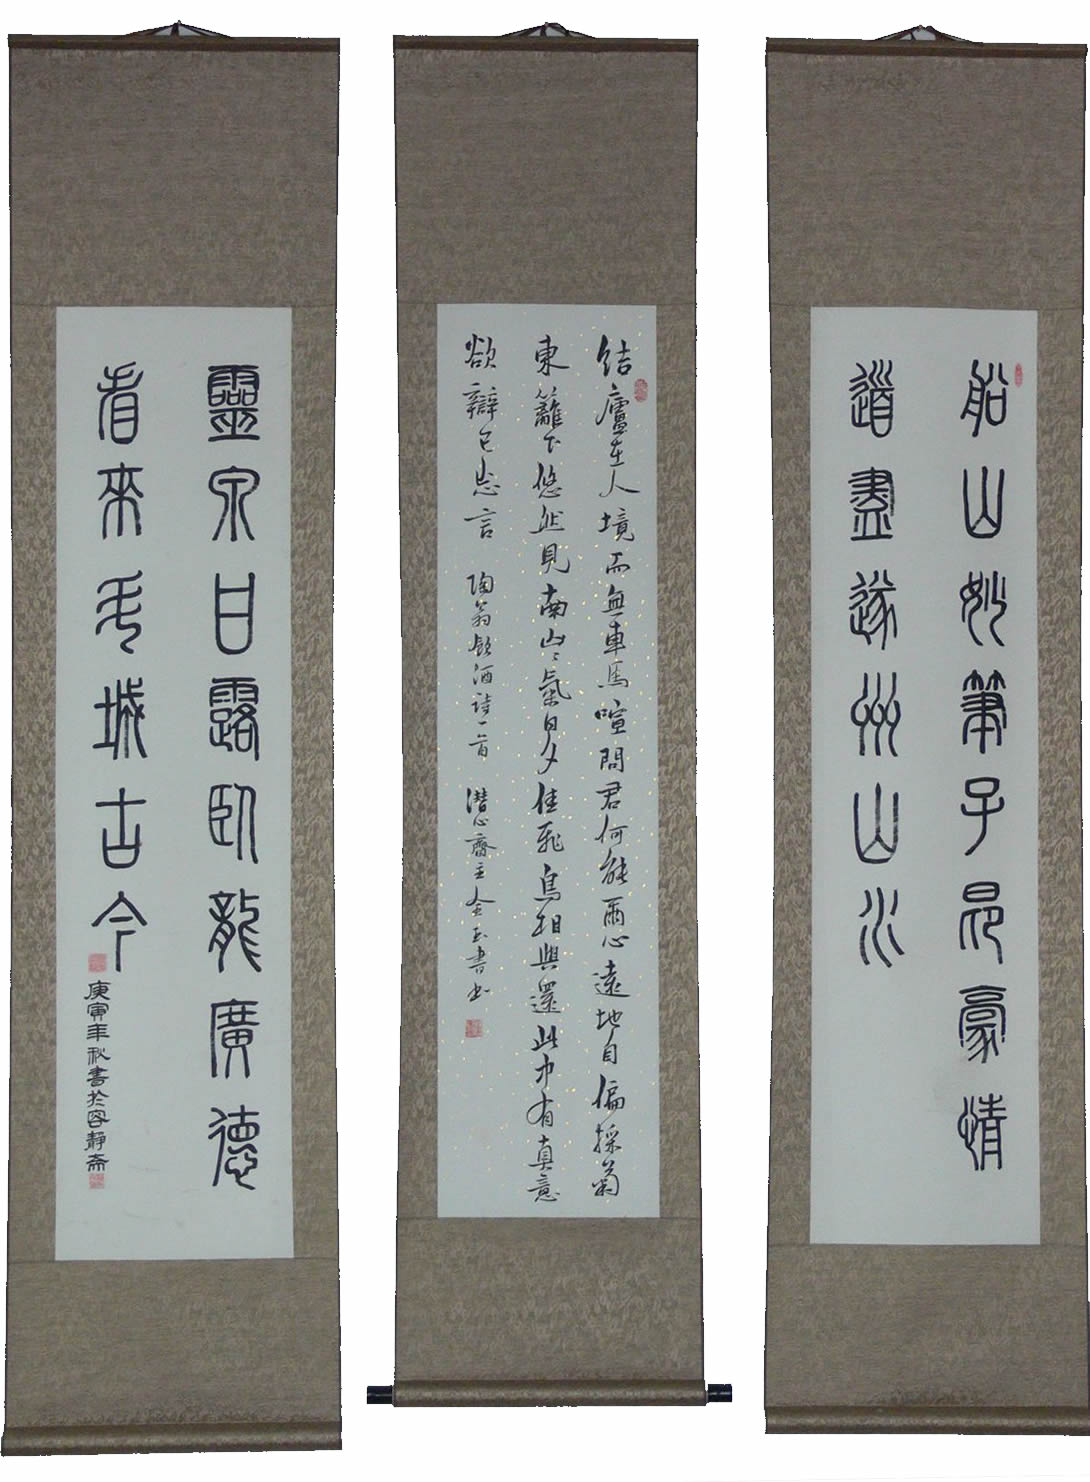 船山妙筆子昂豪情
道盡遂州山水
結廬在人境而無車馬喧問君何能爾心遠地自偏採菊
東籬下悠然見南山〻氣日夕佳飛鳥相與還此中有真意
欲辯已忘言 陶翁飲酒詩一首 潛心齋主金玉書
靈泉甘露臥龍廣德
看來斗城古今
庚寅年秋書於容靜斋